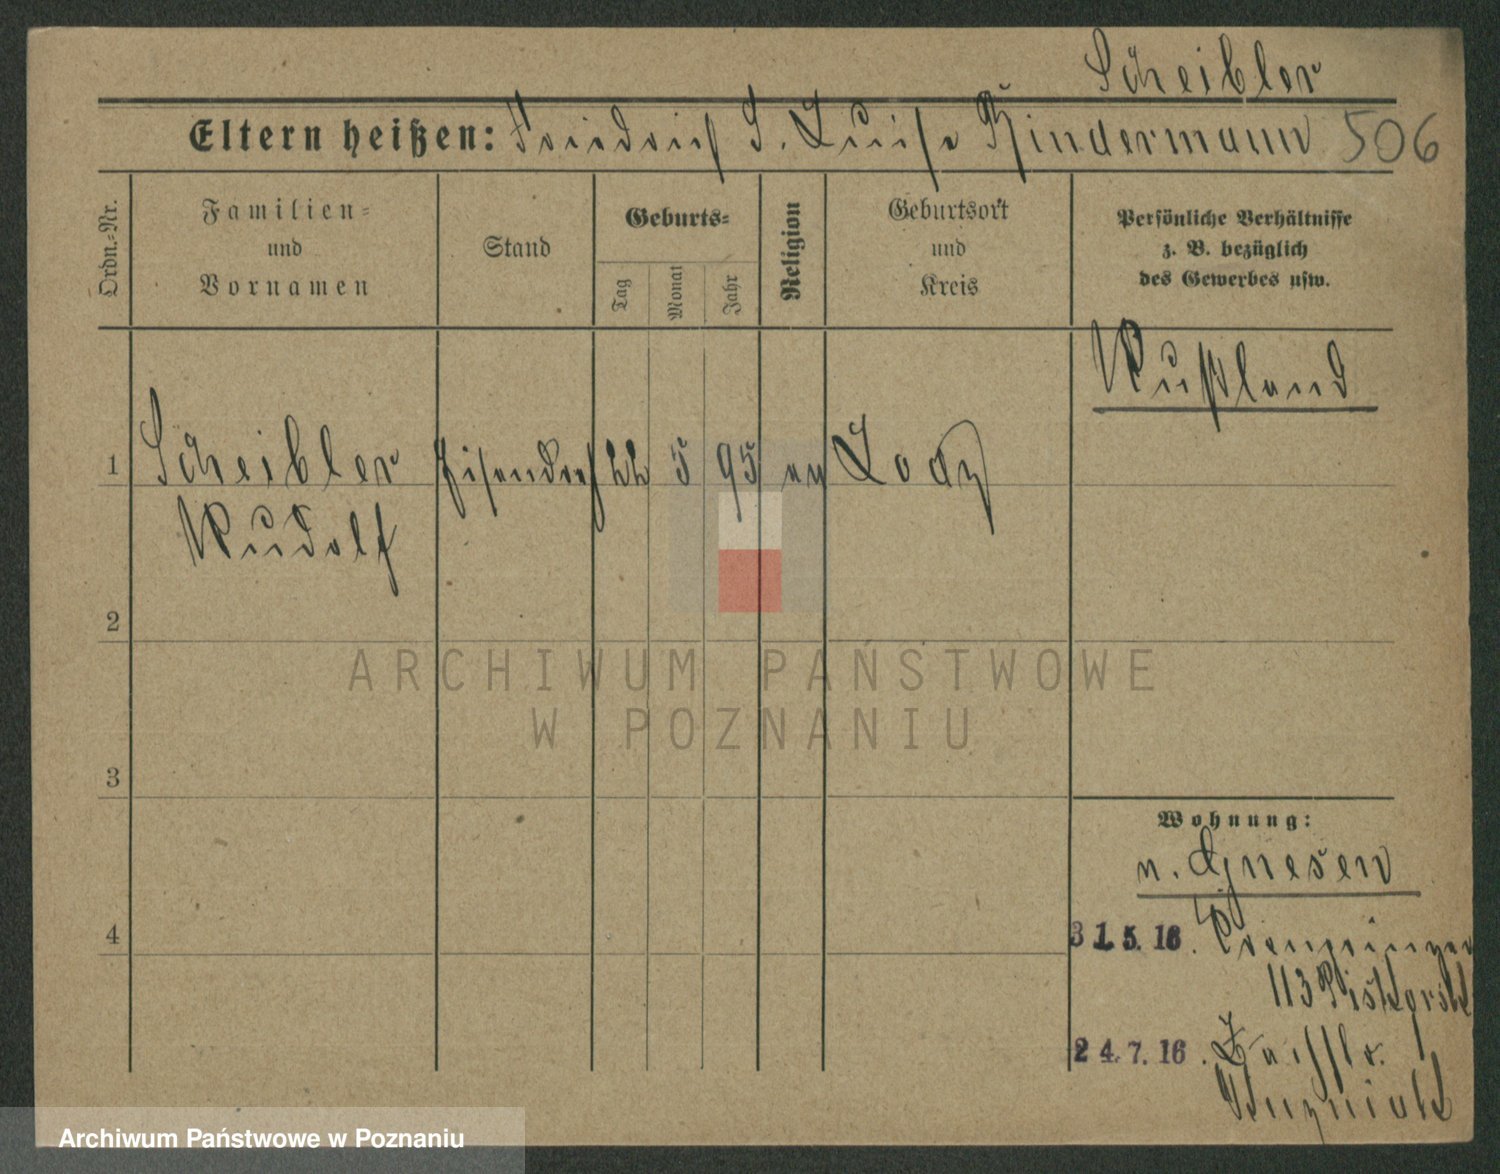 Scheibler
Eltern heißen: Friedrich S. Luise Kindermann 506
Ordn.-Nr.
Familien-
und
Vornamen
Stand
Geburts-
Tag
Monat
Jahr
Religion
Geburtsort
und
Kreis
Persönliche Verhältnisse
z. B. bezüglich
des Gewerbes usw.
Rußland
1 Scheibler 22 5 95 ev Lodz
Rudolf
2
3
4
ARCHIWUM PAŃSTWOWE
W POZNANIU
Wohnung:
n. Gnesen
31.5.16.
113
24.7.16.
Archiwum Państwowe w Poznaniu